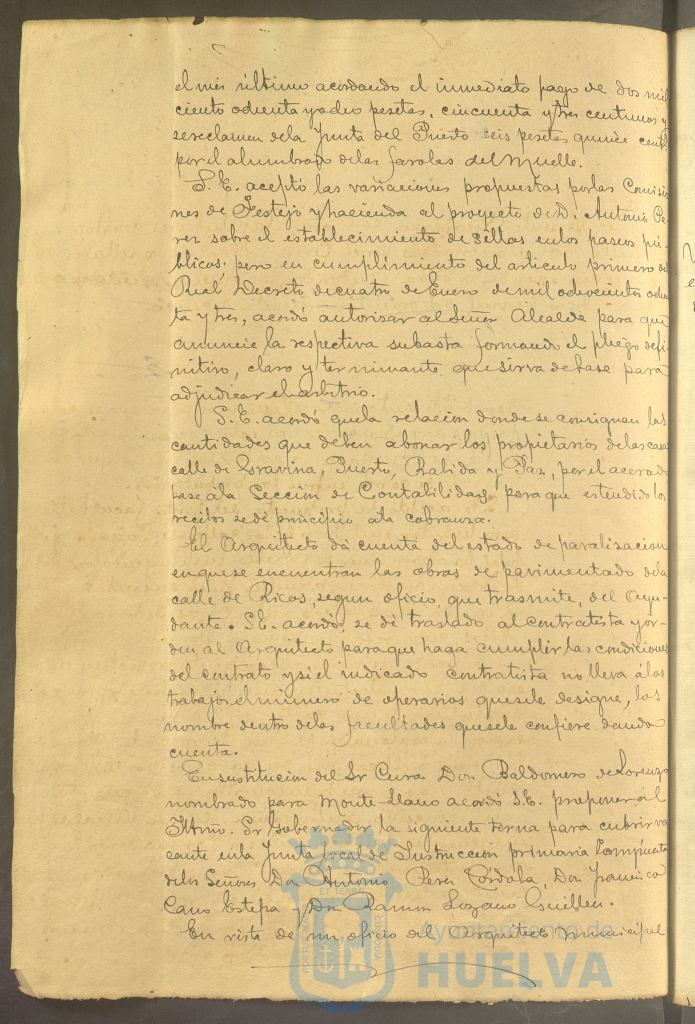 el mes último acordando el inmediato pago de dos mil
ciento ochenta y ocho pesetas, cincuenta y tres centimos y
se reclamen de la Junta del Puerto seis pesetas quince cent.
por el alumbrado de las farolas del Muelle.
S. E. aceptó las variaciones propuestas por las Comisio
nes de Festejo y hacienda al proyecto de D. Antonio Pe
rez sobre el establecimiento de sillas en los paseos pú
blicos; pero en cumplimiento del articulo primero del
Real Decreto de cuatro de Enero de mil ochocientos ochen
ta y tres, acordó autorizar al Señor Alcalde para que
anuncie la respectiva subasta formando el pliego defi
nitivo, claro y terminante que sirva de base para
adjudicar el arbitrio.
S. E. acordó que la relacion donde se consignan las
cantidades que deben abonar los propietarios de las casas
calle de Gravina, Puerto, Rabida y Paz, por el acerado
pase á la Seccion de Contabilidad para que estendido los
recibos se dé principio a la cobranza.
El Arquitecto dá cuenta del estado de paralizacion
en que se encuentran las obras de pavimentado de la
calle de Ricos, segun oficio que trasmite, del Ayu-
dante. S. E. acordó, se dé traslado al contratista y or-
den al Arquitecto para que haga cumplir las condiciones
del contrato y si el indicado contratista no lleva á los
trabajos el número de operarios que se le designe, los
nombre dentro de las facultades que se le confiere dando
cuenta.
En sustitucion del Sr Cura Don Baldomero de Lorenzo
nombrado para Monte-Llano acordó S. E. proponer al
Iltmo. Sr Gobernador la siguiente terna para cubrir va
cante en la Junta local de Instruccion primaria Compuesta
de los Señores Don Antonio Perez Córdoba, Don Francisco
Cano Estepa y Don Ramon Lozano Guillen.
En vista de un oficio del Arquitecto Municipal
Ayuntamiento de
HUELVA